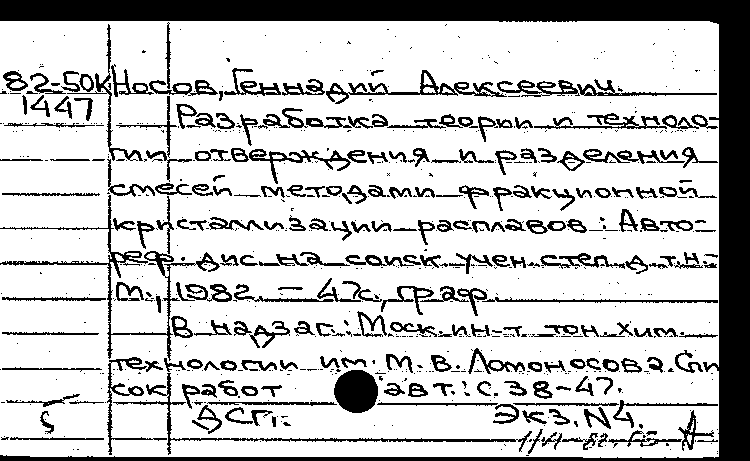 82-50К Носов, Геннадий Алексеевич.
1447 Разработка теории и техноло-
гии отверждения и разделения
смесей методами фракционной
кристаллизации расплавов: Авто-
реф. дис. на соиск. учен. степ. д.т.н.-
М., 1982. - 47с., граф.
В надзаг.: Моск. ин-т тон. хим.
технологии им. М. В. Ломоносова. Спи
сок работ авт.: с. 38-47.
5 ДСП: Экз. N4.
1/VI-82.